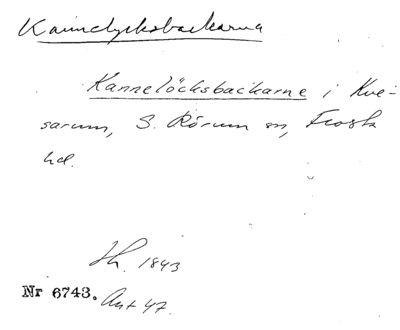 Kannelycksbackarna
Kannelöcksbackarne i Kve-
sarum, S. Rörum sn, Frosta
hd.
1843
Nr 6743. Ant 47.